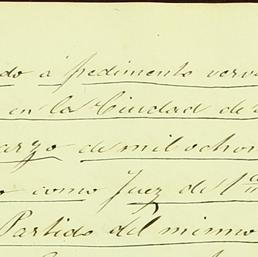 do á pedimento verva
en la Ciudad de
arzo de mil ocho
o como Juez de 1ª
Partido del mismo